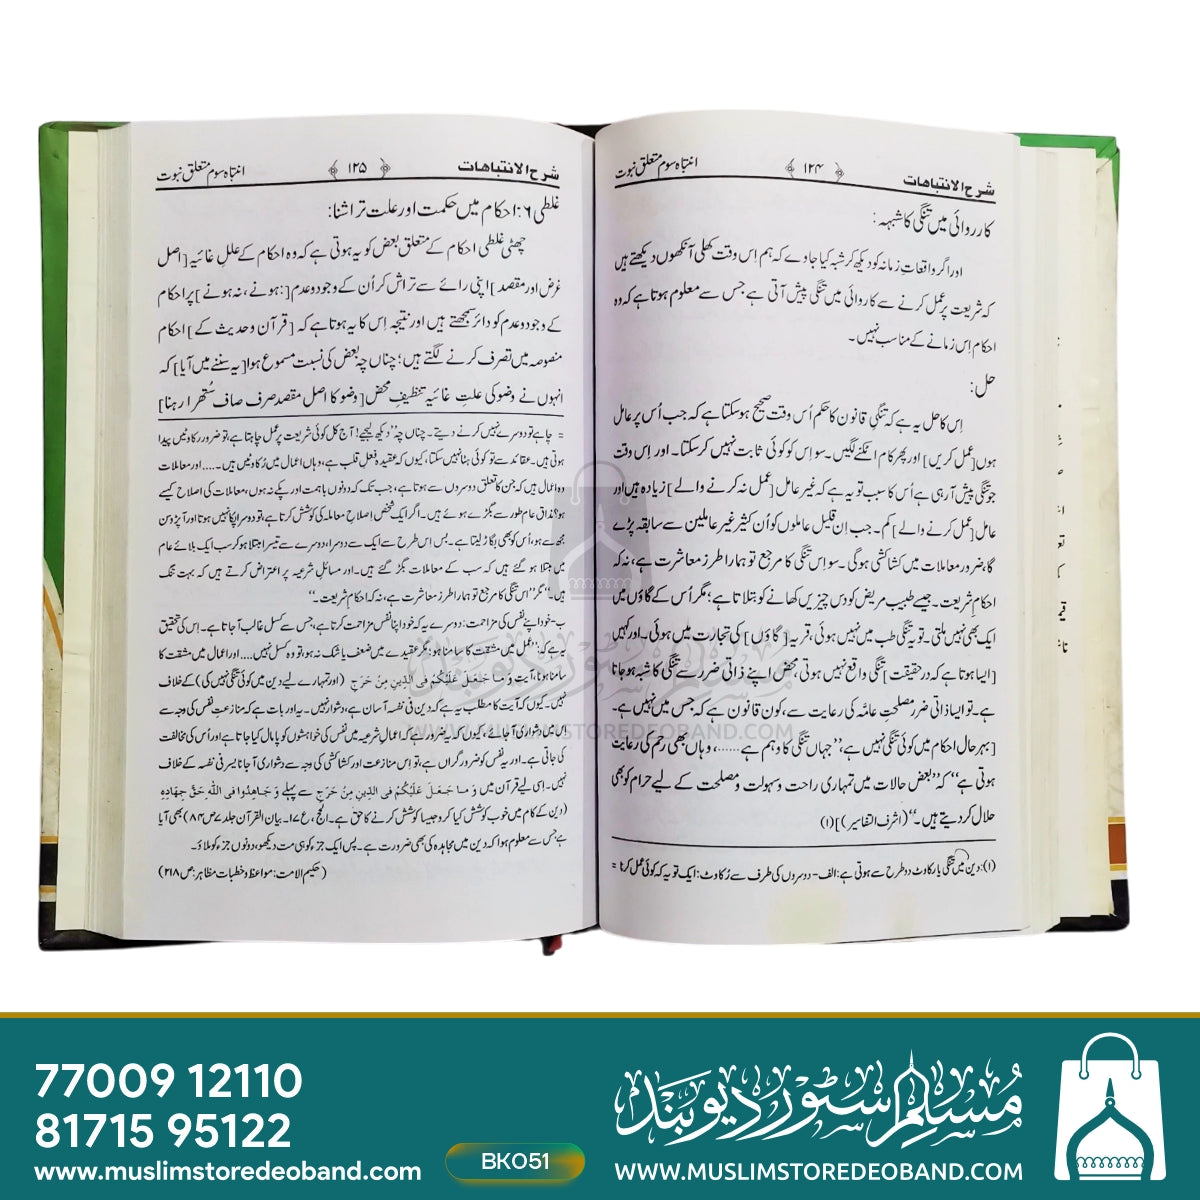 شرح الانتباہات ﴿۱۲۴﴾ انتباہ سوم متعلق نبوت
کارروائی میں تنگی کا شبہہ:
اور اگر واقعاتِ زمانہ کو دیکھ کر شبہ کیا جاوے کہ ہم اِس وقت کھلی آنکھوں دیکھتے ہیں
کہ شریعت پر عمل کرنے سے کاروائی میں تنگی پیش آتی ہے جس سے معلوم ہوتا ہے کہ وہ
احکام اِس زمانے کے مناسب نہیں۔
حل:
اِس کا حل یہ ہے کہ تنگیِ قانون کا حکم اُس وقت صحیح ہوسکتا ہے کہ جب اُس پر عامل
ہوں [عمل کریں] اور پھر کام اٹکنے لگیں۔ سو اِس کو کوئی ثابت نہیں کرسکتا۔ اور اِس وقت
جو تنگی پیش آرہی ہے اُس کا سبب تو یہ ہے کہ غیر عامل [عمل نہ کرنے والے] زیادہ ہیں اور
عامل [عمل کرنے والے] کم۔ جب اِن قلیل عاملوں کو اُن کثیر غیر عاملین سے سابقہ پڑے
گا، ضرور معاملات میں کشاکشی ہوگی۔ سو اِس تنگی کا مرجع تو ہمارا طرزِ معاشرت ہے، نہ کہ
احکامِ شریعت۔ جیسے طبیب مریض کو دس چیزیں کھانے کو بتلاتا ہے؛ مگر اُس کے گاؤں میں
ایک بھی نہیں ملتی۔ تو یہ تنگی طب میں نہیں ہوئی، قریہ [گاؤں] کی تجارت میں ہوئی۔ اور کہیں
[ایسا ہوتا ہے کہ درحقیقت] تنگی واقع نہیں ہوتی، محض اپنے ذاتی ضرر سے تنگی کا شبہ ہوجاتا
ہے۔ تو ایسا ذاتی ضرر مصلحتِ عامّہ کی رعایت سے، کون قانون ہے کہ جس میں نہیں ہے۔
[بہرحال احکام میں کوئی تنگی نہیں ہے، ”جہاں تنگی کا وہم ہے......، وہاں بھی رحم کی رعایت
ہوتی ہے“ کہ ”بعض حالات میں تمہاری راحت و سہولت و مصلحت کے لیے حرام کو بھی
حلال کردیتے ہیں۔“ (اشرف التفاسیر)](۱)
(۱): دین میں تنگی یا رکاوٹ دو طرح سے ہوتی ہے: الف- دوسروں کی طرف سے رُکاوٹ: ایک تو یہ کہ کوئی عمل کرنا =
شرح الانتباہات ﴿۱۲۵﴾ انتباہ سوم متعلق نبوت
غلطی ۶: احکام میں حکمت اور علت تراشنا:
چھٹی غلطی احکام کے متعلق بعض کو یہ ہوتی ہے کہ وہ احکام کے عللِ غائیہ [اصل
غرض اور مقصد] اپنی رائے سے تراش کر اُن کے وجود و عدم [: ہونے، نہ ہونے] پر احکام
کے وجود و عدم کو دائر سمجھتے ہیں اور نتیجہ اِس کا یہ ہوتا ہے کہ [قرآن و حدیث کے] احکام
منصوصہ میں تصرف کرنے لگتے ہیں؛ چناں چہ بعض کی نسبت مسموع ہوا [یہ سننے میں آیا] کہ
انہوں نے وضو کی علتِ غائیہ تنظیفِ محض [وضو کا اصل مقصد صرف صاف سُتھرا رہنا]
= چاہے تو دوسرے نہیں کرنے دیتے۔ چناں چہ ”دیکھ لیجیے! آج کل کوئی شریعت پر عمل چاہتا ہے، تو ضرور رکاوٹیں پیدا
ہوتی ہیں۔ عقائد سے تو کوئی ہٹا نہیں سکتا، کیوں کہ عقیدہ فعلِ قلب ہے، دہاں اعمال میں رُکاوٹیں ہیں۔....اور معاملات
وہ اعمال ہیں کہ جن کا تعلق دوسروں سے ہوتا ہے، جب تک کہ دونوں باہمت اور پکے نہ ہوں، معاملات کی اصلاح کیسے
ہو؟ مذاق عام طور سے بگڑے ہوئے ہیں۔ اگر ایک شخص اصلاح معاملہ کی کوشش کرتا ہے، تو دوسرا پکا نہیں ہوتا اور آپڑوسن
مجھ سے ہو، اُس کو بھی بگاڑ لیتا ہے۔ بس اِس طرح سے ایک سے دوسرا، دوسرے سے تیسرا مبتلا ہو کر سب ایک بلائے عام
میں مبتلا ہو گئے ہیں کہ سب کے معاملات بگڑ گئے ہیں۔ اور مسائلِ شرعیہ پر اعتراض کرتے ہیں کہ بہت تنگ
ہیں۔“ مگر ”اس تنگی کا مرجع تو ہمارا طرزِ معاشرت ہے، نہ کہ احکامِ شریعت۔“
ب- خود اپنے نفس کی مزاحمت: دوسرے یہ کہ خود اپنا نفس مزاحمت کرتا ہے، جس سے کسل غالب آجاتا ہے۔ اِس کی تحقیق
یہ ہے کہ: ”عمل میں مشقت کا سامنا ہو؛ مگر عقیدے میں ضعف یا شک نہ ہو، تو وہ کسل نہیں....اور اعمال میں مشقت کا
سامنا ہونا، آیت وَمَا جَعَلَ عَلَيْكُمْ فِي الدِّيْنِ مِنْ حَرَجٍ (اور تمہارے لیے دین میں کوئی تنگی نہیں کی) کے خلاف
نہیں۔ کیوں کہ آیت کا مطلب یہ ہے کہ دین فی نفسہ آسان ہے، دشوار نہیں۔ یہ اور بات ہے کہ منازعتِ نفس کی وجہ سے
اِس میں دشواری آجائے، کیوں کہ یہ ضرور ہے کہ اعمالِ شرعیہ میں نفس کی خواہشوں کو پامال کیا جاتا ہے اور اُس کی مخالفت
کی جاتی ہے۔ اور یہ نفس کو ضرور گراں ہے، تو اِس منازعت اور کشاکشی کی وجہ سے دشواری آجانا یسر فی نفسہ کے خلاف
نہیں۔ اِسی لیے قرآن میں وَمَا جَعَلَ عَلَيْكُمْ فِي الدِّيْنِ مِنْ حَرَجٍ سے پہلے وَجَاهِدُوا فِي اللَّهِ حَقَّ جِهَادِهِ
(دین کے کام میں خوب کوشش کیا کرو جیسا کوشش کرنے کا حق ہے۔ الحج، ع۱۷۔ بیان القرآن جلد۷ ص۸۴) بھی آیا
ہے جس سے معلوم ہوا کہ دین میں مجاہدہ کی بھی ضرورت ہے۔ پس ایک جزء کو ہی مت دیکھو، دونوں جزء کو ملاؤ۔
(حکیم الامت: مواعظ و خطبات مظاہر: ص ۲۱۸)
مسلم سٹور دیوبند
WWW.MUSLIMSTOREDEOBAND.COM
77009 12110
81715 95122
www.muslimstoredeoband.com
BK051
مسلم سٹور دیوبند
WWW.MUSLIMSTOREDEOBAND.COM